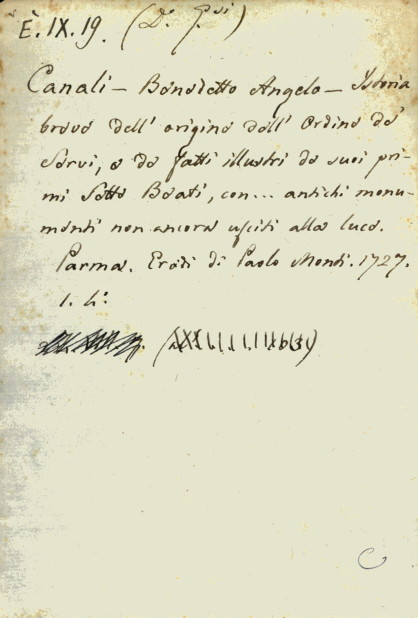 È. IX. 19. (D. G.si)
Canali – Benedetto Angelo – Istoria
breve dell' origine dell' Ordine de'
Servi, e de fatti illustri de suoi pri-
mi Sette Beati, con... antichi monu-
menti non ancora usciti alla luce.
Parma. Eredi di Paolo Monti. 1727.
1. 4°: